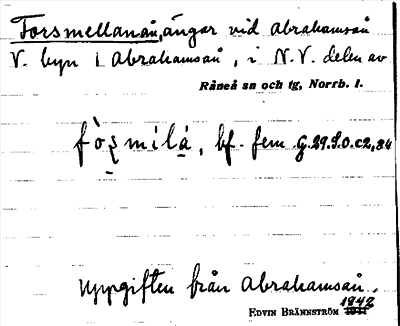 Forsmellanån, ängar vid Abrahamsån
V. byn i Abrahamsån, i N.V. delen av
Råneå sn och tg, Norrb. l.
fò̱ʂmilá̱, bf. fem. G.29.S.O.c2,84
Uppgiften från Abrahamsån.
1942
EDVIN BRÄNNSTRÖM 1941